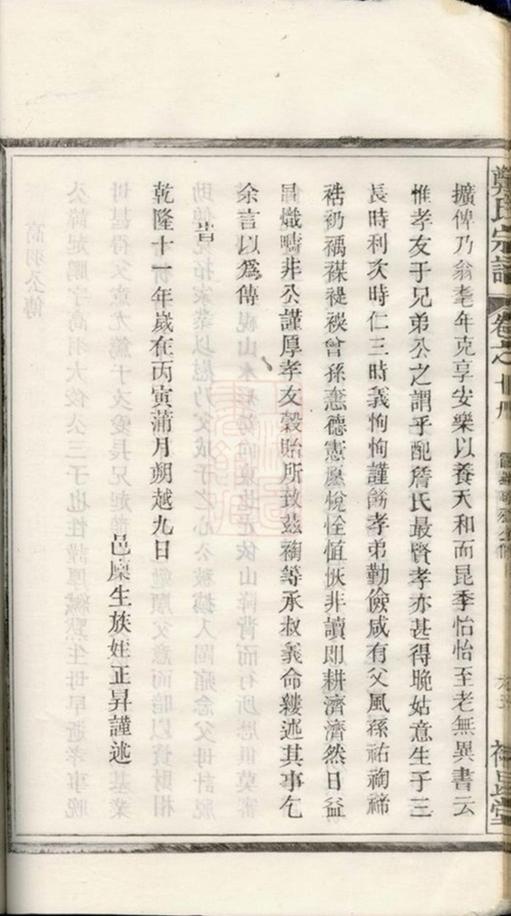 鄭氏宗譜 卷之
擴俾乃翁耄年克享安樂以養天和而昆季怡怡至老無異書云
惟孝友于兄弟公之謂乎配詹氏最賢孝亦甚得晚姑意生子三
長時利次時仁三時義恂恂謹飭孝弟勤儉咸有父風孫祐祹禘
祰礽禑禖禔祾曾孫德憲愿悅恮恆恢非讀即耕濟濟然日益
昌熾疇非公謹厚孝友穀貽所致茲祹等承叔義命縷述其事乞
余言以爲傳
旹
乾隆十一年歲在丙寅蒲月朔越九日
邑廩生族姪正昇謹述